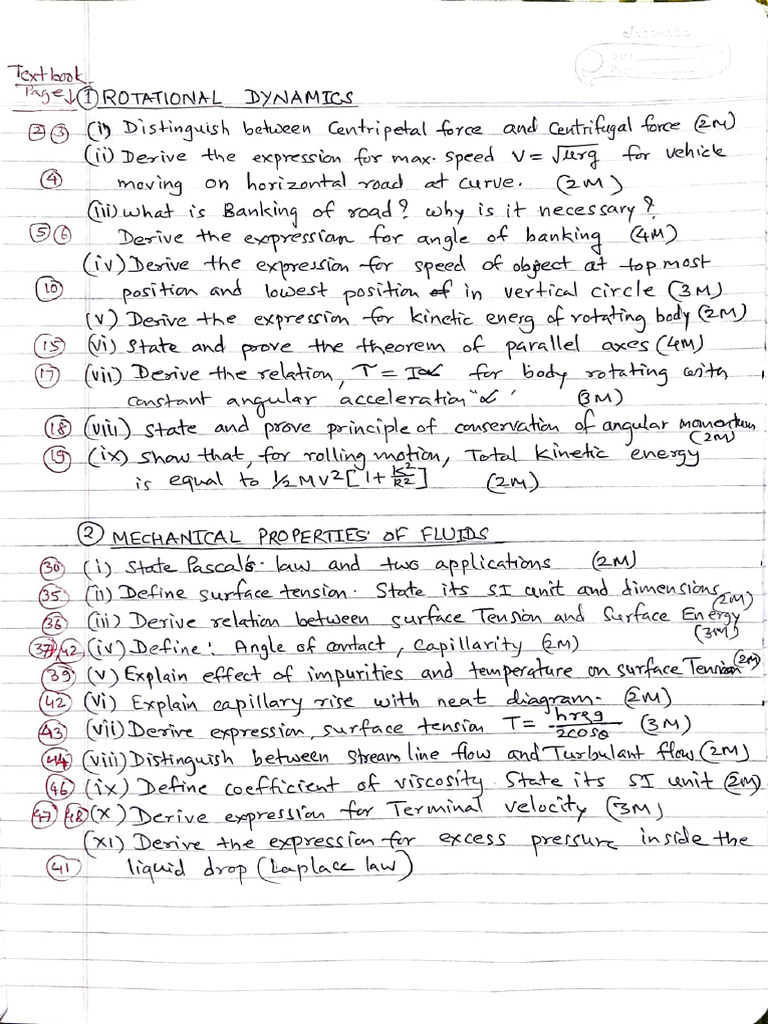 Textbook
Page↓ ① ROTATIONAL DYNAMICS
② ③ (i) Distinguish between Centripetal force and Centrifugal force (2M)
(ii) Derive the expression for max. speed V = √μrg for vehicle
④ moving on horizontal road at curve. (2M)
(iii) what is Banking of road? why is it necessary?
⑤ ⑥ Derive the expression for angle of banking (4M)
(iv) Derive the expression for speed of object at top most
⑩ position and lowest position of in vertical circle (3M)
(v) Derive the expression for kinetic energ of rotating body (2M)
⑮ (vi) State and prove the theorem of parallel axes (4M)
⑰ (vii) Derive the relation, τ = Iα for body rotating with
constant angular acceleration "α" (3M)
⑱ (viii) state and prove principle of conservation of angular momentum
(2M)
⑲ (ix) show that, for rolling motion, Total kinetic energy
is equal to 1/2 MV2 [1 + K²/R²] (2M)
② MECHANICAL PROPERTIES OF FLUIDS
㉚ (i) State Pascal's law and two applications (2M)
㉟ (ii) Define surface tension. State its SI unit and dimensions (2M)
㊱ (iii) Derive relation between surface Tension and Surface Energy
(3M)
㊲ ㊷ (iv) Define: Angle of contact, Capillarity (2M)
㊴ (v) Explain effect of impurities and temperature on surface Tension (2M)
㊷ (vi) Explain capillary rise with neat diagram. (2M)
㊸ (vii) Derive expression, surface tension T = hrρg/2cosθ (3M)
㊹ (viii) Distinguish between stream line flow and Turbulant flow (2M)
㊻ (ix) Define coefficient of viscosity. State its SI unit (2M)
㊼ ㊽ (x) Derive expression for Terminal velocity (3M)
(xi) Derive the expression for excess pressure inside the
㊶ liquid drop (Laplace law)